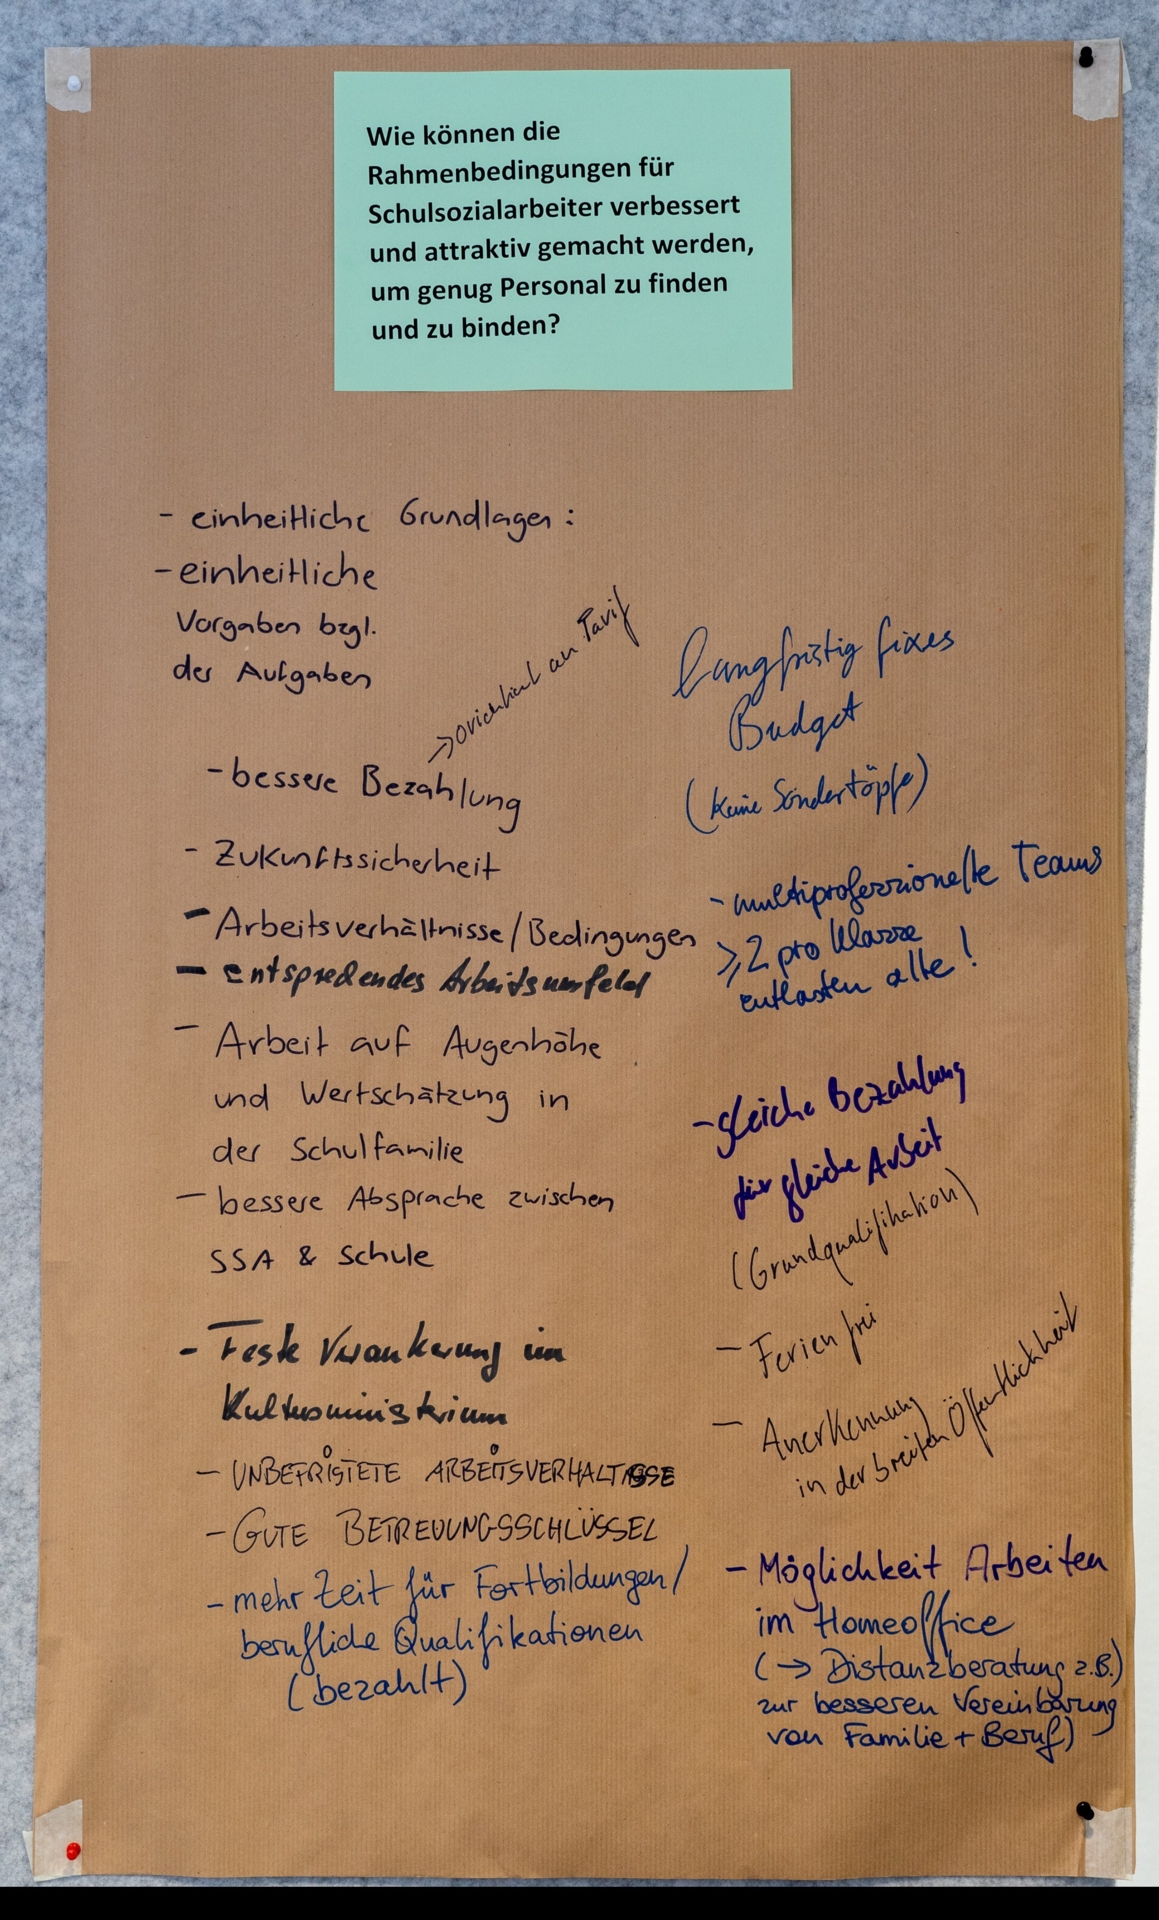 Wie können die
Rahmenbedingungen für
Schulsozialarbeiter verbessert
und attraktiv gemacht werden,
um genug Personal zu finden
und zu binden?
- einheitliche Grundlagen :
- einheitliche
Vorgaben bzgl.
der Aufgaben
→ orientiert an Tarif
- bessere Bezahlung
- Zukunftssicherheit
- Arbeitsverhältnisse/Bedingungen
- entsprechendes Arbeitsumfeld
- Arbeit auf Augenhöhe
und Wertschätzung in
der Schulfamilie
- bessere Absprache zwischen
SSA & Schule
- Feste Verankerung im
Kultusministerium
- UNBEFRISTETE ARBEITSVERHALTNISSE
- GUTE BETREUUNGSSCHLÜSSEL
- mehr Zeit für Fortbildungen/
berufliche Qualifikationen
(bezahlt)
langfristig fixes
Budget
(keine Sondertöpfe)
- multiprofessionelle Teams
≥ 2 pro Klasse
entlasten alle !
- gleiche Bezahlung
für gleiche Arbeit
(Grundqualifikation)
- Ferien frei
- Anerkennung
in der breiten Öffentlichkeit
- Möglichkeit Arbeiten
im Homeoffice
(→ Distanzberatung z.B.)
zur besseren Vereinbarung
von Familie + Beruf)